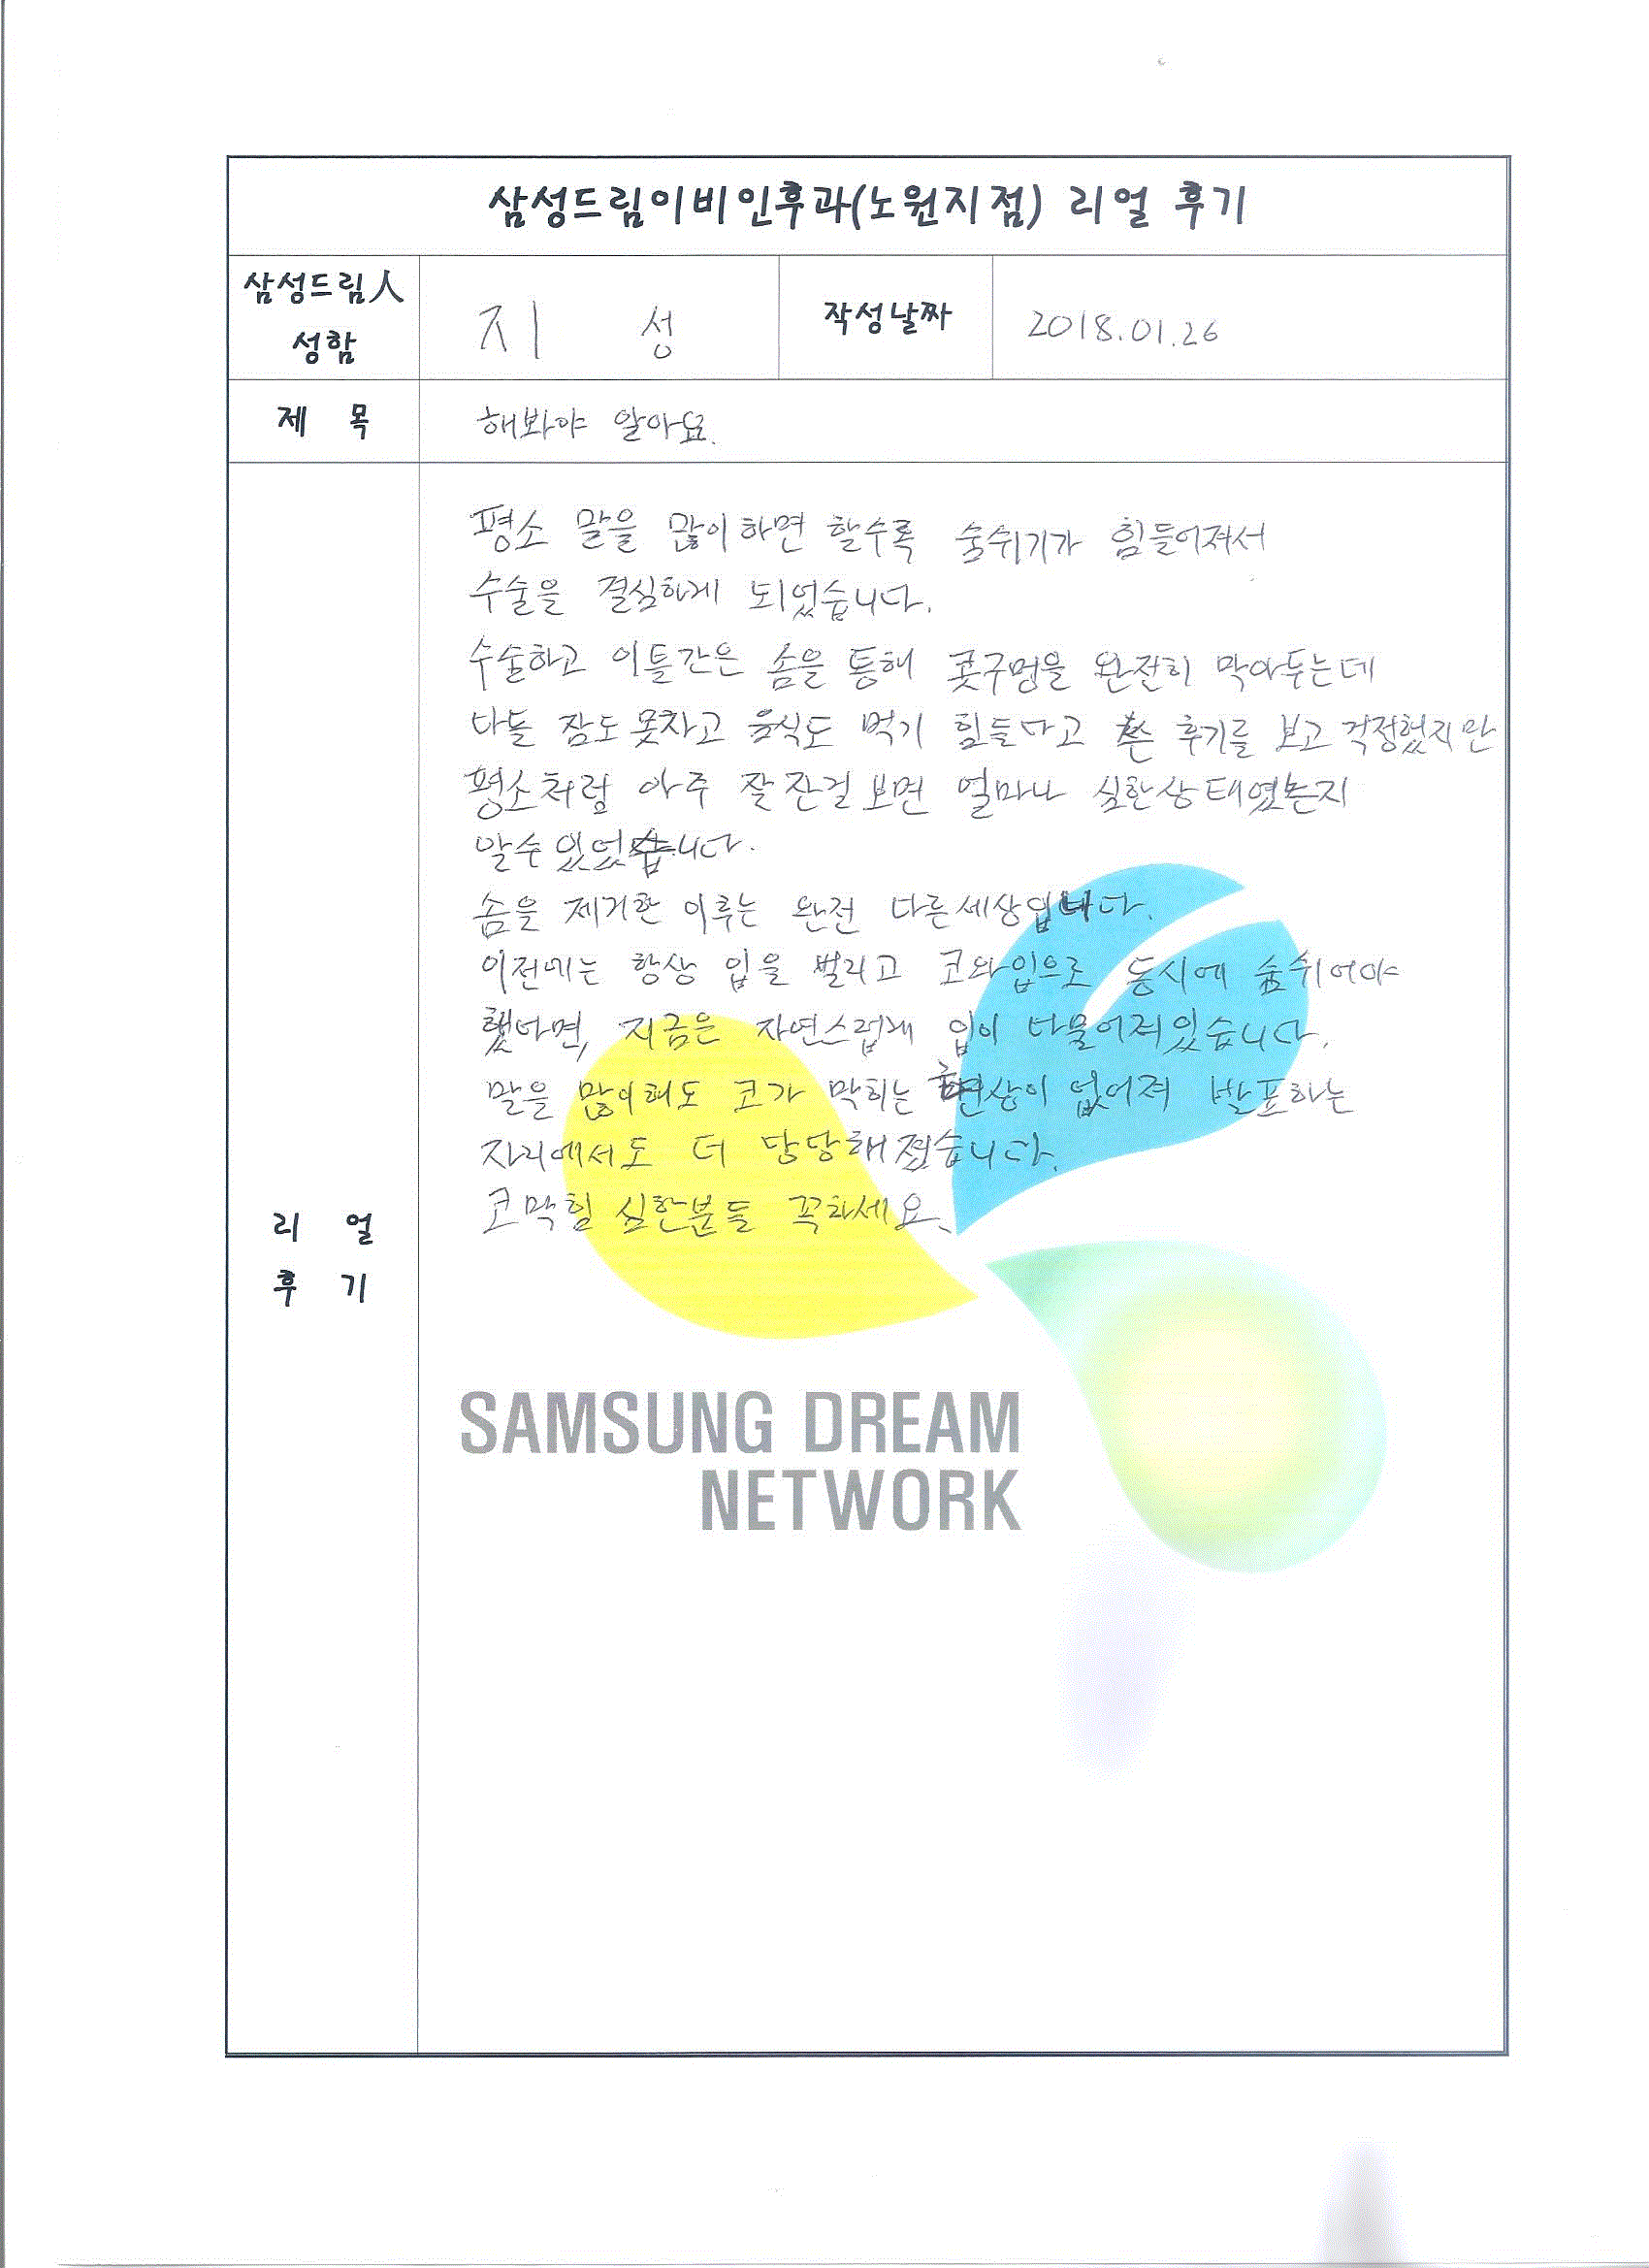 삼성드림이비인후과(노원지점) 리얼 후기
삼성드림人
성함
지 성
작성날짜
2018.01.26
제 목
해봐야 알아요.
평소 말을 많이하면 할수록 숨쉬기가 힘들어져서
수술을 결심하게 되었습니다.
수술하고 이틀간은 솜을 통해 콧구멍을 완전히 막아두는데
다들 잠도 못자고 음식도 먹기 힘들다고 쓴 후기를 보고 걱정했지만
평소처럼 아주 잘잔걸 보면 얼마나 심한상태였는지
알수있었습니다.
솜을 제거한 이후는 완전 다른세상입니다.
이전에는 항상 입을 벌리고 코와입으로 동시에 숨쉬어야
했다면, 지금은 자연스럽게 입이 다물어져있습니다.
말을 많이해도 코가 막히는 현상이 없어져 발표하는
자리에서도 더 당당해졌습니다.
코막힘 심한분들 꼭하세요.
리 얼
후 기
SAMSUNG DREAM
NETWORK